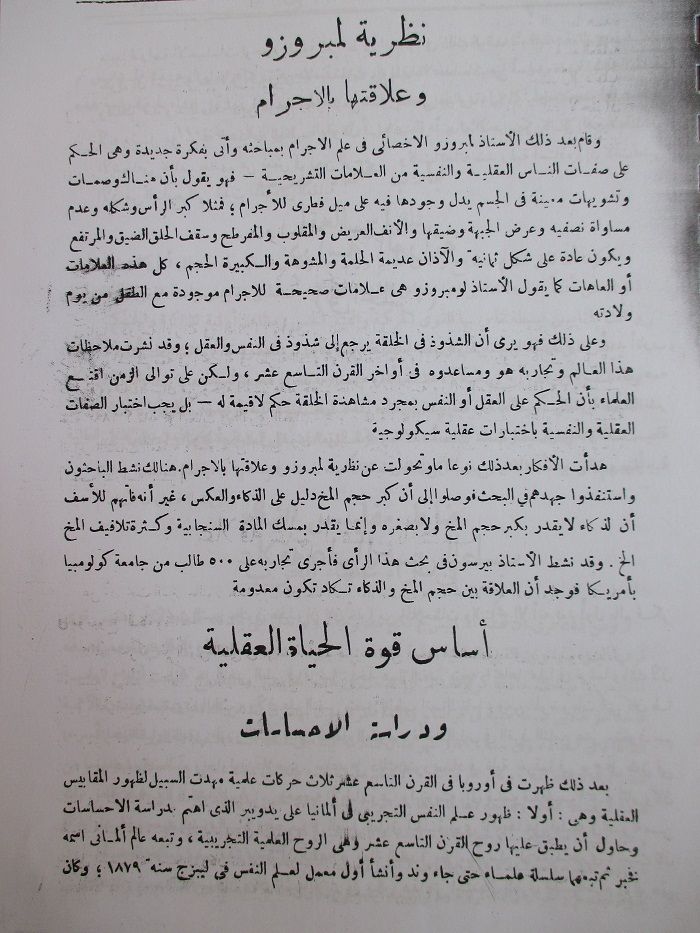 نظرية لمبروزو
وعلاقتها بالاجرام
وقام بعد ذلك الأستاذ لمبروزو الاخصائى فى علم الاجرام بمباحثه وأتى بفكرة جديدة وهى الحكم
على صفات الناس العقلية والنفسية من العلامات التشريحية — فهو يقول بأن هناك وصمات
وتشويهات معينة فى الجسم يدل وجودها فيه على ميل فطرى للأجرام ؛ فمثلا كبر الرأس وشكله وعدم
مساواة نصفيه وعرض الجبهة وضيقها والأنف العريض والمقلوب والمفرطح وسقف الحلق الضيق والمرتفع
ويكون عادة على شكل ثمانية والآذان عديمة الحلمة والمشوهة والكبيرة الحجم ، كل هذه العلامات
أو العاهات كما يقول الأستاذ لومبروزو هى علامات صحيحة للاجرام موجودة مع الطفل من يوم
ولادته
وعلى ذلك فهو يرى أن الشذوذ فى الخلقة يرجع إلى شذوذ فى النفس والعقل ؛ وقد نشرت ملاحظات
هذا العالم وتجاربه هو ومساعدوه فى أواخر القرن التاسع عشر ، ولكن على توالى الزمن اقتنع
العلماء بأن الحكم على العقل أو النفس بمجرد مشاهدة الخلقة حكم لاقيمة له — بل يجب اختبار الصفات
العقلية والنفسية باختبارات عقلية سيكولوجية
هدأت الأفكار بعد ذلك نوعا ما وتحولت عن نظرية لمبروزو وعلاقتها بالاجرام. هنالك نشط الباحثون
واستنفذوا جهدهم فى البحث فوصلوا إلى أن كبر حجم المخ دليل على الذكاء والعكس ، غير أنه فاتهم للأسف
أن الذكاء لايقدر بكبر حجم المخ ولا بصغره وإنما يقدر بمسك المادة السنجابية وكثرة تلافيف المخ
الخ . وقد نشط الأستاذ بيرسون فى بحث هذا الرأى فأجرى تجاربه على ٥٠٠ طالب من جامعة كولومبيا
بأمريكا فوجد أن العلاقة بين حجم المخ والذكاء تكاد تكون معدومة
أساس قوة الحياة العقلية
ودراسة الاحساسات
بعد ذلك ظهرت فى أوروبا فى القرن التاسع عشر ثلاث حركات علمية مهدت السبيل لظهور المقاييس
العقلية وهى : أولا : ظهور علم النفس التجريبى فى ألمانيا على يد ويبر الذى اهتم بدراسة الاحساسات
وحاول أن يطبق عليها روح القرن التاسع عشر وهى الروح العلمية التجريبية ، وتبعه عالم ألمانى اسمه
فخبر ثم تبعهما سلسلة علماء حتى جاء وند وأنشأ أول معمل لعلم النفس فى ليبزج سنة ١٨٧٩ ؛ وكان